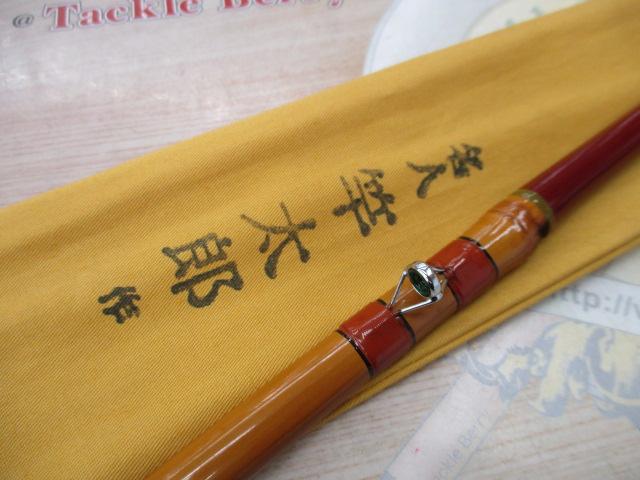 @ Tackle Berry
名人 竿太郎 作
http://w
Tackle Berry